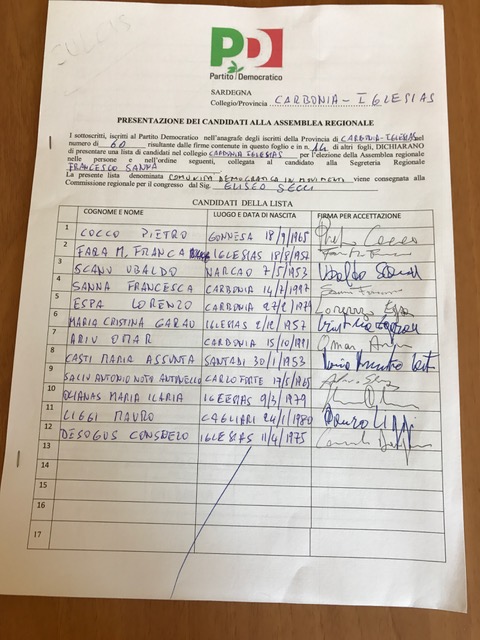 SULCIS
PD
Partito Democratico
SARDEGNA
Collegio/Provincia CARBONIA - IGLESIAS
PRESENTAZIONE DEI CANDIDATI ALLA ASSEMBLEA REGIONALE
I sottoscritti, iscritti al Partito Democratico nell'anagrafe degli iscritti della Provincia di CARBONIA-IGLESIAS nel
numero di 60 risultante dalle firme contenute in questo foglio e in n. 14 di altri fogli, DICHIARANO
di presentare una lista di candidati nel collegio CARBONIA IGLESIAS per l'elezione della Assemblea regionale
nelle persone e nell'ordine seguenti, collegata al candidato alla Segreteria Regionale
FRANCESCO SANNA
La presente lista denominata COMUNITÀ DEMOCRATICA IN MOVIMENTO viene consegnata alla
Commissione regionale per il congresso dal Sig. ELISEO SECCI
CANDIDATI DELLA LISTA
COGNOME E NOME LUOGO E DATA DI NASCITA FIRMA PER ACCETTAZIONE
1 COCCO PIETRO GONNESA 18/9/1965 Pietro Cocco
2 FARA M. FRANCA IGLESIAS 18/8/1952
3 SCANU UBALDO NARCAO 7/5/1953 Ubaldo Scanu
4 SANNA FRANCESCA CARBONIA 14/7/1987
5 ESPA LORENZO CARBONIA 27/12/1979 Lorenzo Espa
6 MARIA CRISTINA GARAU IGLESIAS 2/12/1957
7 ARIU OMAR CARBONIA 15/10/1991 Omar Ariu
8 CASTI MARIA ASSUNTA SANTADI 30/1/1953 Maria Assunta Casti
9 SALIU ANTONIO NOTO ANTONELLO CARLOFORTE 17/5/1965
10 OLIANAS MARIA ILARIA IGLESIAS 9/3/1979
11 LIGGI MAURO CAGLIARI 24/1/1980 Mauro Liggi
12 DESOGUS CONSUELO IGLESIAS 11/4/1975
13
14
15
16
17